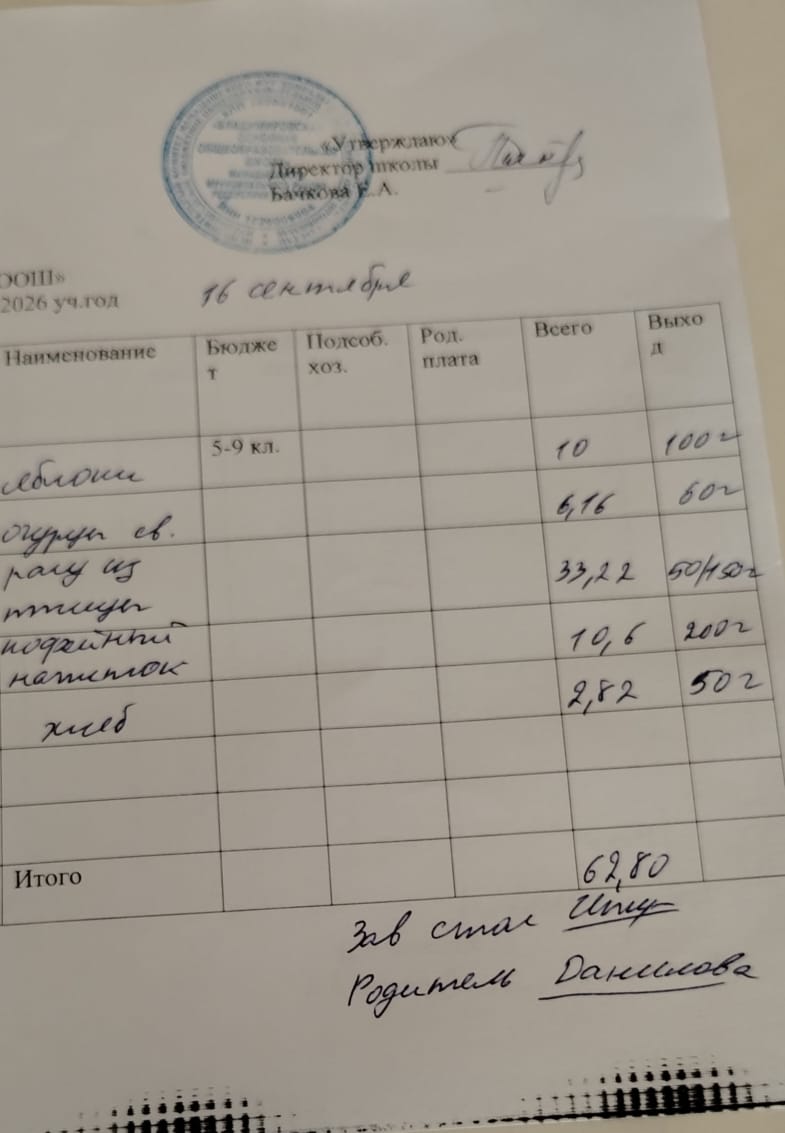 «Утверждаю»
Директор школы
Бачкова Е.А.
ООШ»
2026 уч.год 16 сентября
Наименование Бюджет Подсоб. хоз. Род. плата Всего Выход
яблоки 5-9 кл. 10 100г
огурцы св. 6,16 60г
рагу из
птицы 33,22 50/150г
кофейный
напиток 10,6 200г
хлеб 2,82 50г
Итого 62,80
Зав стол
Родитель Данилова